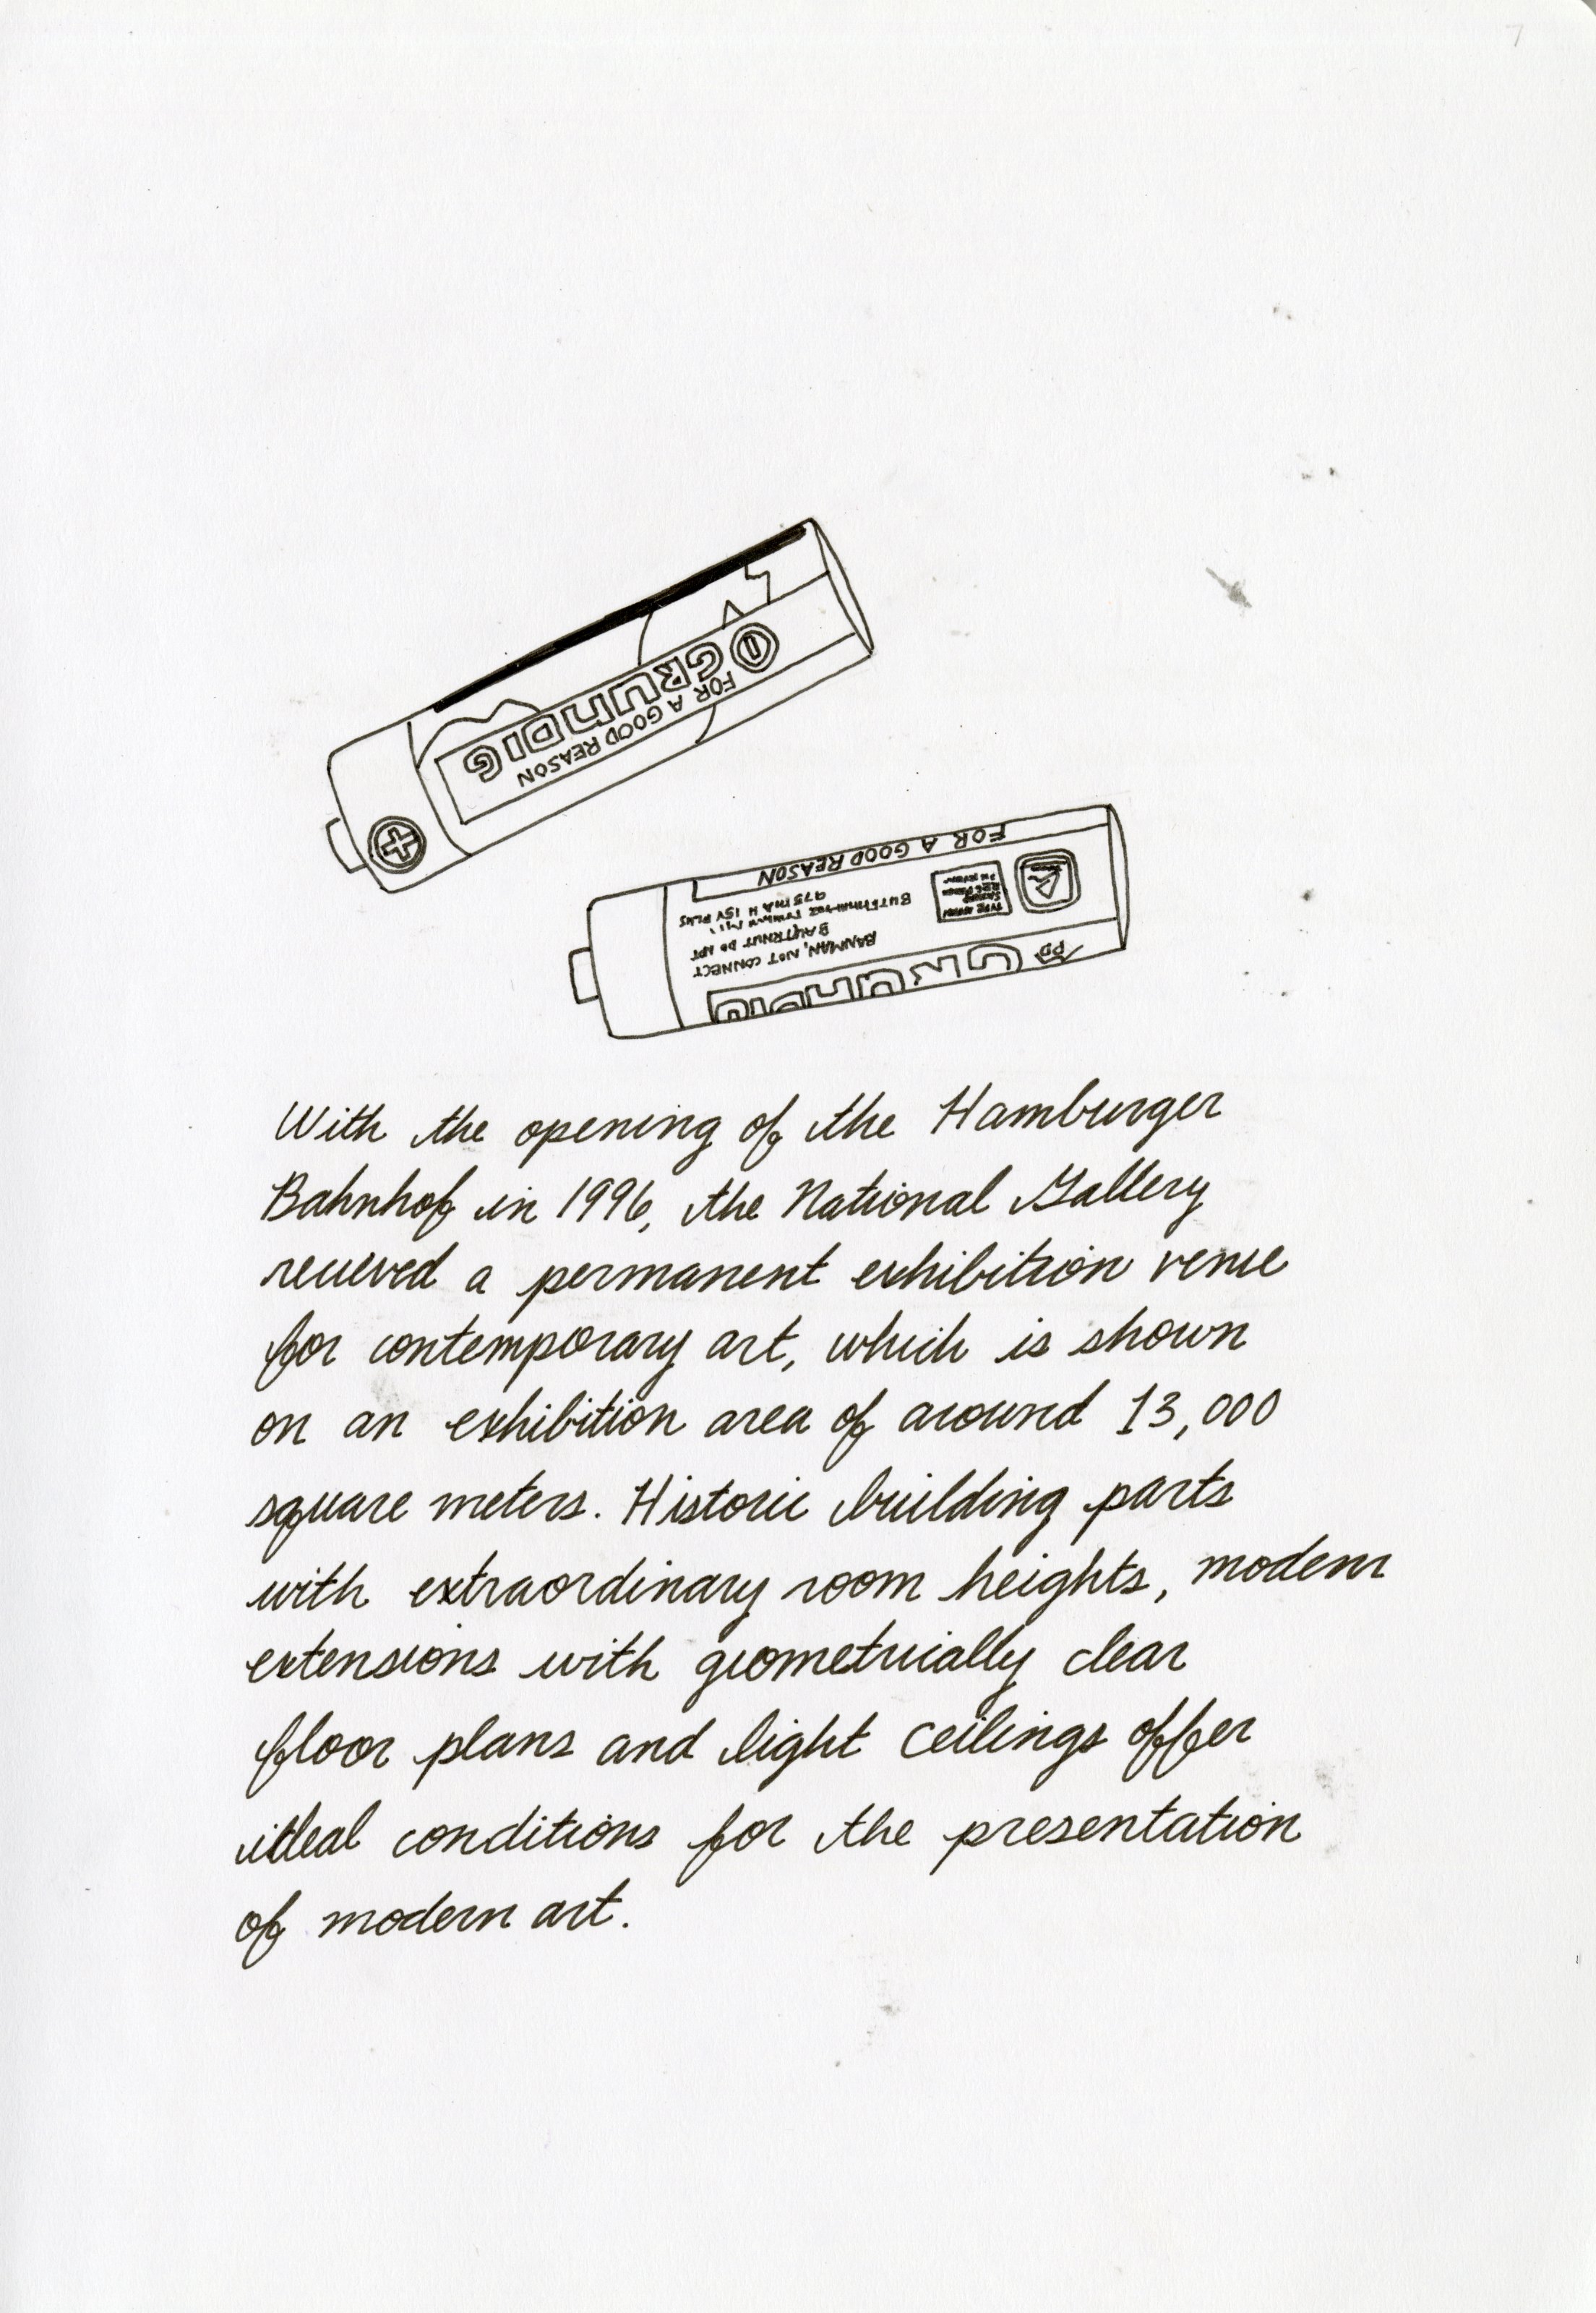 7
GRUNDIG
FOR A GOOD REASON
FOR A GOOD REASON
975 mA H 1.5V PLUS
DO NOT
NOT CONNECT
GRUNDIG
With the opening of the Hamburger
Bahnhof in 1996, the National Gallery
recieved a permanent exhibition venue
for contemporary art, which is shown
on an exhibition area of around 13,000
square meters. Historic building parts
with extraordinary room heights, modern
extensions with geometrically clear
floor plans and light ceilings offer
ideal conditions for the presentation
of modern art.